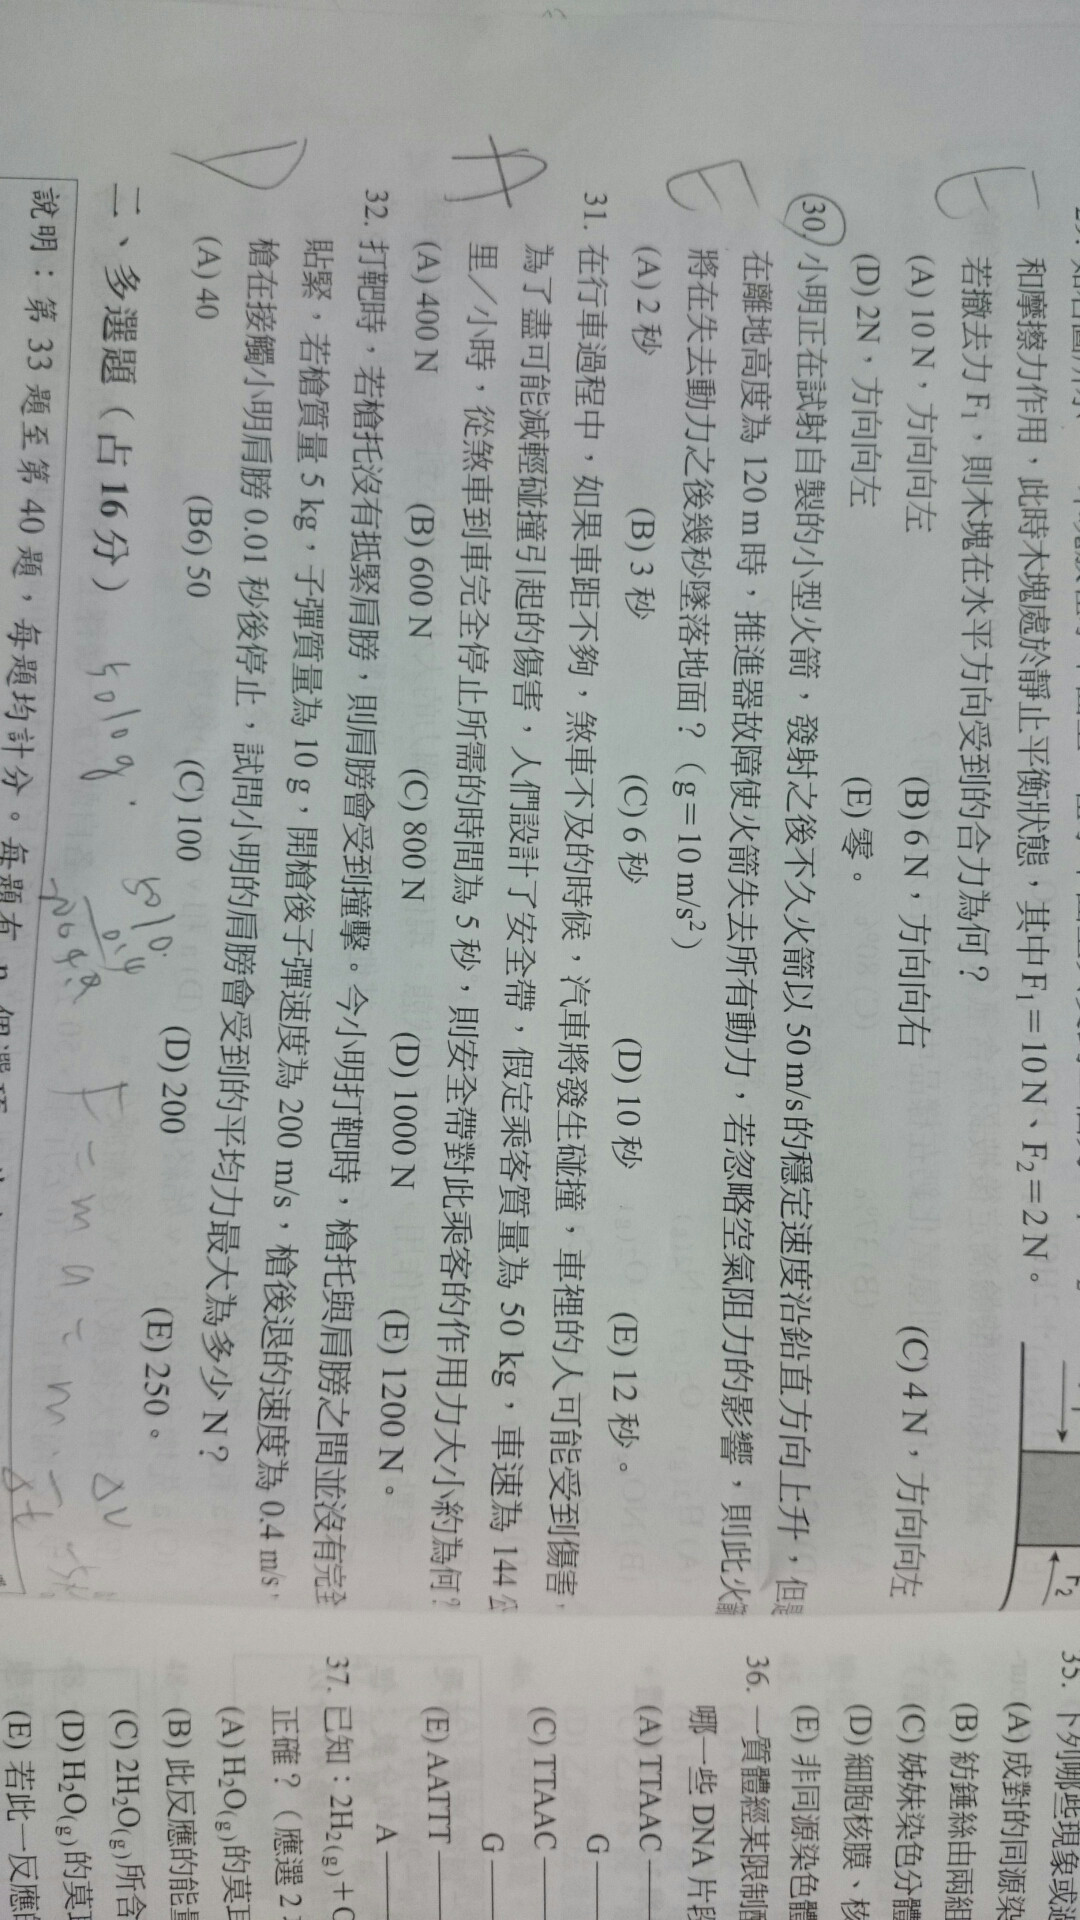 和摩擦力作用,此時木塊處於靜止平衡狀態,其中F₁=10N、F₂=2N。
若撤去力F₁,則木塊在水平方向受到的合力為何?
E
(A) 10 N,方向向左 (B) 6 N,方向向右 (C) 4 N,方向向左
(D) 2N,方向向左 (E) 零。
F₂
30. 小明正在試射自製的小型火箭,發射之後不久火箭以 50 m/s的穩定速度沿鉛直方向上升,但是
在離地高度為 120 m 時,推進器故障使火箭失去所有動力,若忽略空氣阻力的影響,則此火箭
將在失去動力之後幾秒墜落地面?(g=10 m/s²)
E
(A) 2 秒 (B) 3 秒 (C) 6 秒 (D) 10 秒 (E) 12 秒。
31. 在行車過程中,如果車距不夠,煞車不及的時候,汽車將發生碰撞,車裡的人可能受到傷害,
為了盡可能減輕碰撞引起的傷害,人們設計了安全帶,假定乘客質量為 50 kg,車速為 144 公
里/小時,從煞車到車完全停止所需的時間為 5 秒,則安全帶對此乘客的作用力大小約為何?
A
(A) 400 N (B) 600 N (C) 800 N (D) 1000 N (E) 1200 N。
32. 打靶時,若槍托沒有抵緊肩膀,則肩膀會受到撞擊。今小明打靶時,槍托與肩膀之間並沒有完全
貼緊,若槍質量 5 kg,子彈質量為 10 g,開槍後子彈速度為 200 m/s,槍後退的速度為 0.4 m/s,
槍在接觸小明肩膀 0.01 秒後停止,試問小明的肩膀會受到的平均力最大為多少 N?
D
(A) 40 (B6) 50 (C) 100 (D) 200 (E) 250。
二、多選題(占 16 分)
F = m a = m
ΔV
Δt
說明:第 33 題至第 40 題,每題均計分。每題有 n 個選項
35. 下列哪些現象或過
(A) 成對的同源染
(B) 紡錘絲由兩組
(C) 姊妹染色分體
(D) 細胞核膜、核
(E) 非同源染色體
36. 一質體經某限制酶
哪一些 DNA 片段
(A) TTAAC
G
(C) TTAAC
G
(E) AATTT
A
37. 已知:2H₂(g)+O
正確?(應選 2
(A) H₂O(g)的莫耳
(B) 此反應的能量
(C) 2H₂O(g)所含
(D) H₂O(g)的莫耳
(E) 若此一反應的